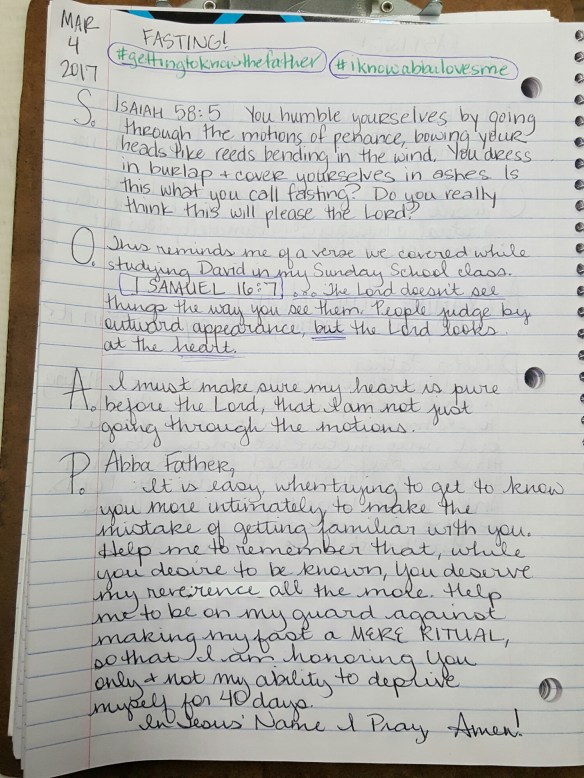 MAR
4
2017
FASTING!
#gettingtoknowthefather #iknowabbalovesme
S. ISAIAH 58:5 You humble yourselves by going
through the motions of penance, bowing your
heads like reeds bending in the wind. You dress
in burlap + cover yourselves in ashes Is
this what you call fasting? Do you really
think this will please the Lord?
O. This reminds me of a verse we covered while
studying David in my Sunday School class.
1 SAMUEL 16:7 ... The Lord doesn't see
things the way you see them. People judge by
outward appearance, but the Lord looks
at the heart.
A. I must make sure my heart is pure
before the Lord, that I am not just
going through the motions.
P. Abba Father,
It is easy, when trying to get to know
you more intimately to make the
mistake of getting familiar with you.
Help me to remember that, while
you desire to be known, You deserve
my reverence all the more. Help
me to be on my guard against
making my fast a MERE RITUAL,
so that I am honoring You
only + not my ability to deprive
myself for 40 days.
In Jesus' Name I Pray Amen!